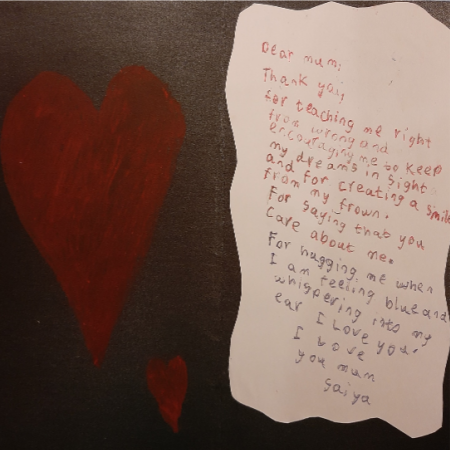 Dear mum,
Thank you,
for teaching me right
from wrong and
encouraging me to keep
my dreams in sight
and for creating a smile
from my frown.
For saying that you
care about me.
For hugging me when
I am feeling blue and
whispering into my
ear I Love you.
I Love
you mum
Saiya